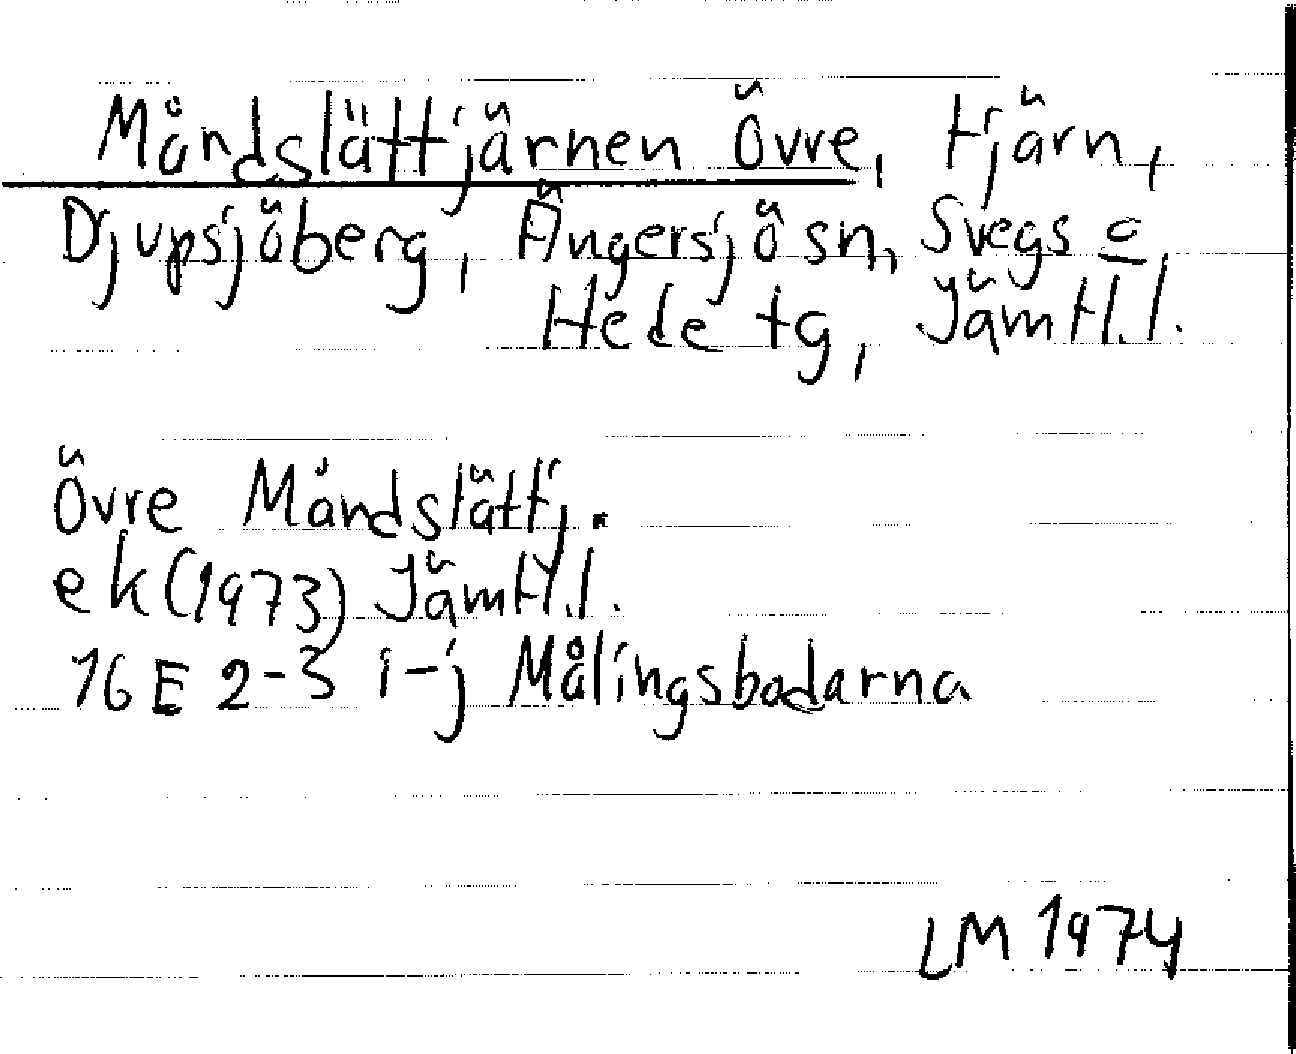 Måndslättjärnen Övre, tjärn,
Djupsjöberg, Ängersjö sn, Svegs o
Hede tg, Jämtl.l.
Övre Måndslättj.
ek (1973) Jämtl.l.
16 E 2-3 i-j Målingsbodarna
LM 1974